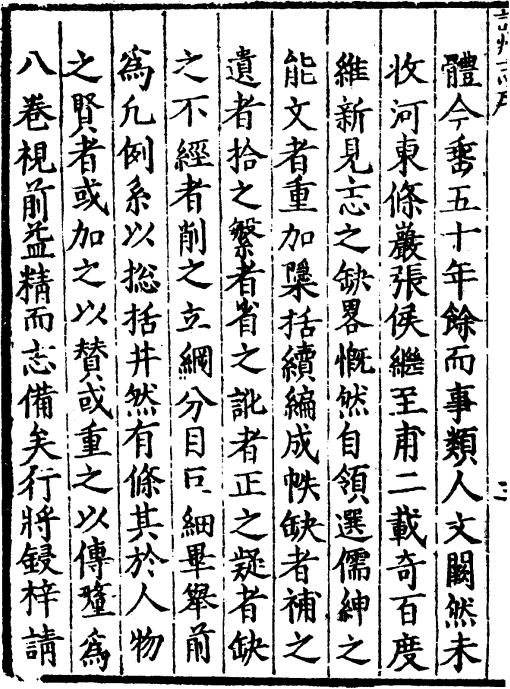 體今埀五十年餘而事類人文闕然未
收河東條巖張侯繼至甫二載奇百度
維新見志之缺畧慨然自領選儒紳之
能文者重加檃括續編成帙缺者補之
遺者拾之繁者省之訛者正之疑者缺
之不經者削之立綱分目巨細畢舉前
爲凡例系以総括井然有條其於人物
之賢者或加之以賛或重之以傳釐爲
八卷視前益精而志備矣行將鋟梓請